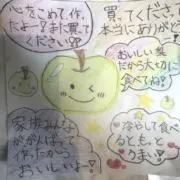 心をこめて、作っ
たよー?また買って
ください!!
買ってくださ
本当にありがと
おいしい梨
だから大切に
食べてね?
家族みんな
がんばって
作ったから
おいしいよ!!
冷やして食べ
るともっと
うまい!!